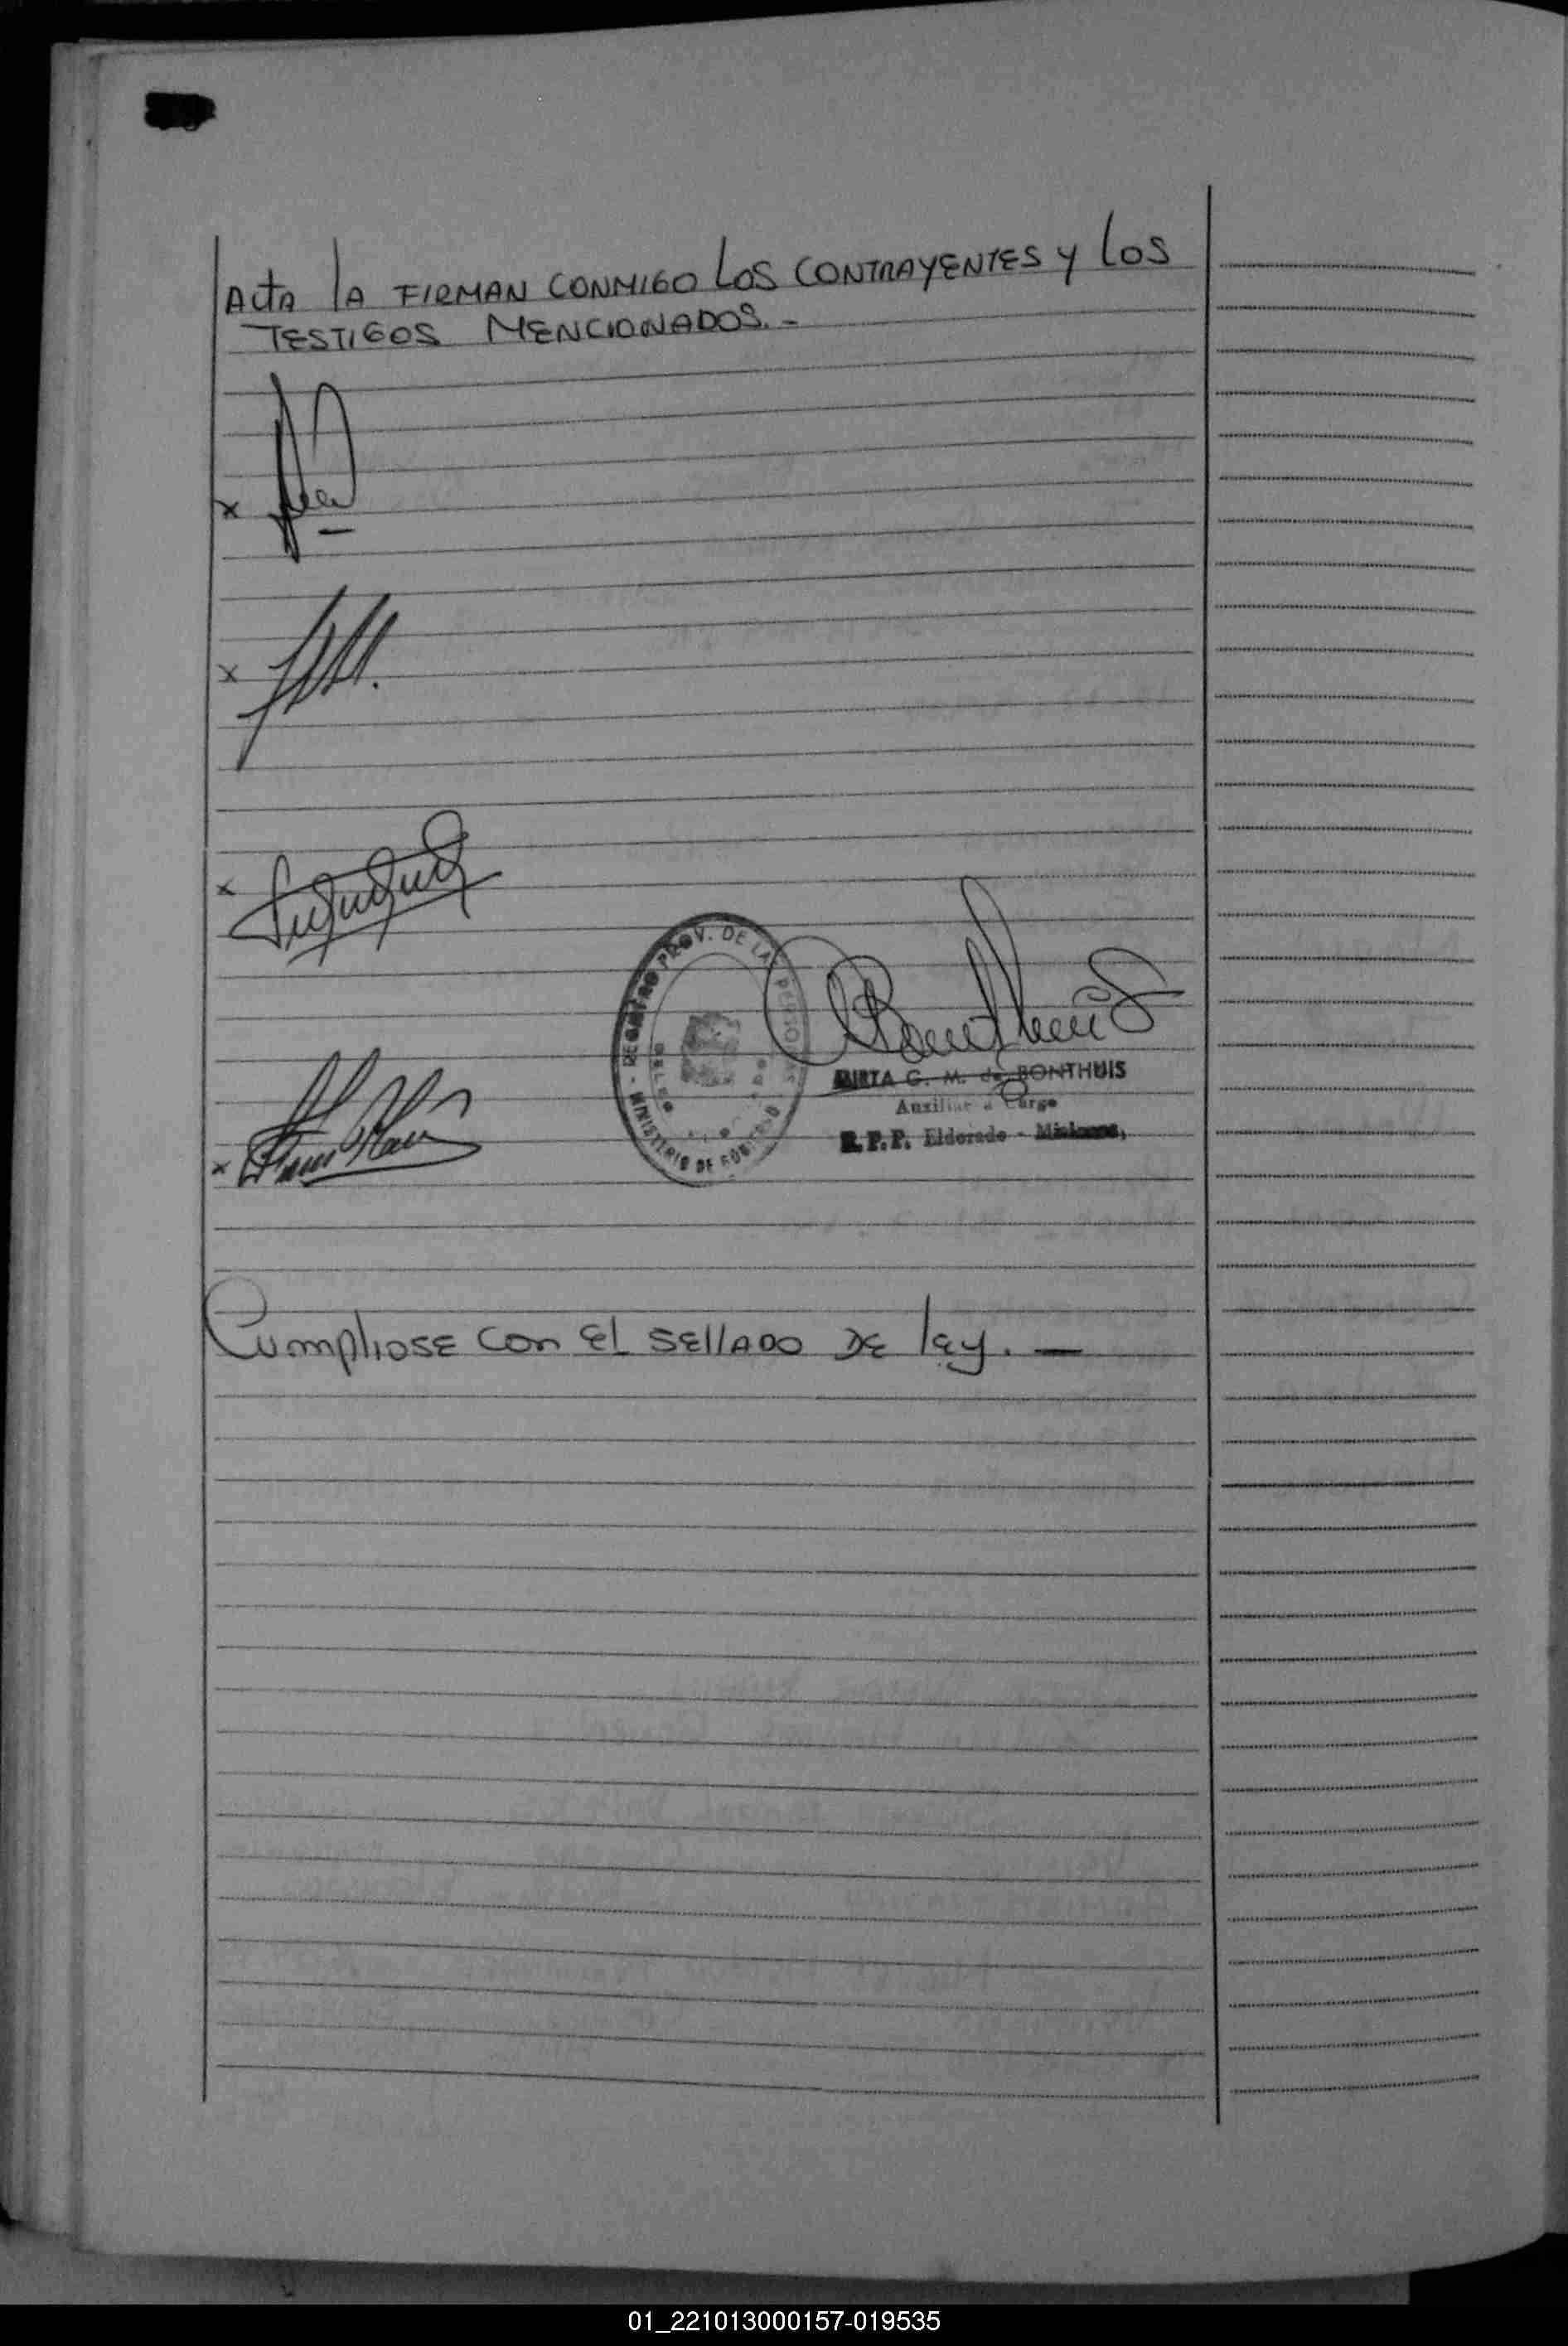 Acta la firman conmigo los contrayentes y los
testigos mencionados.-
x
x
x
x
REGISTRO PROV. DE LAS PERSONAS
MINISTERIO DE GOBIERNO
MIRTA G. M. de BONTHUIS
Auxiliar a Cargo
R.P.P. Eldorado - Misiones,
Cumpliose con el sellado de ley.—
01_221013000157-019535